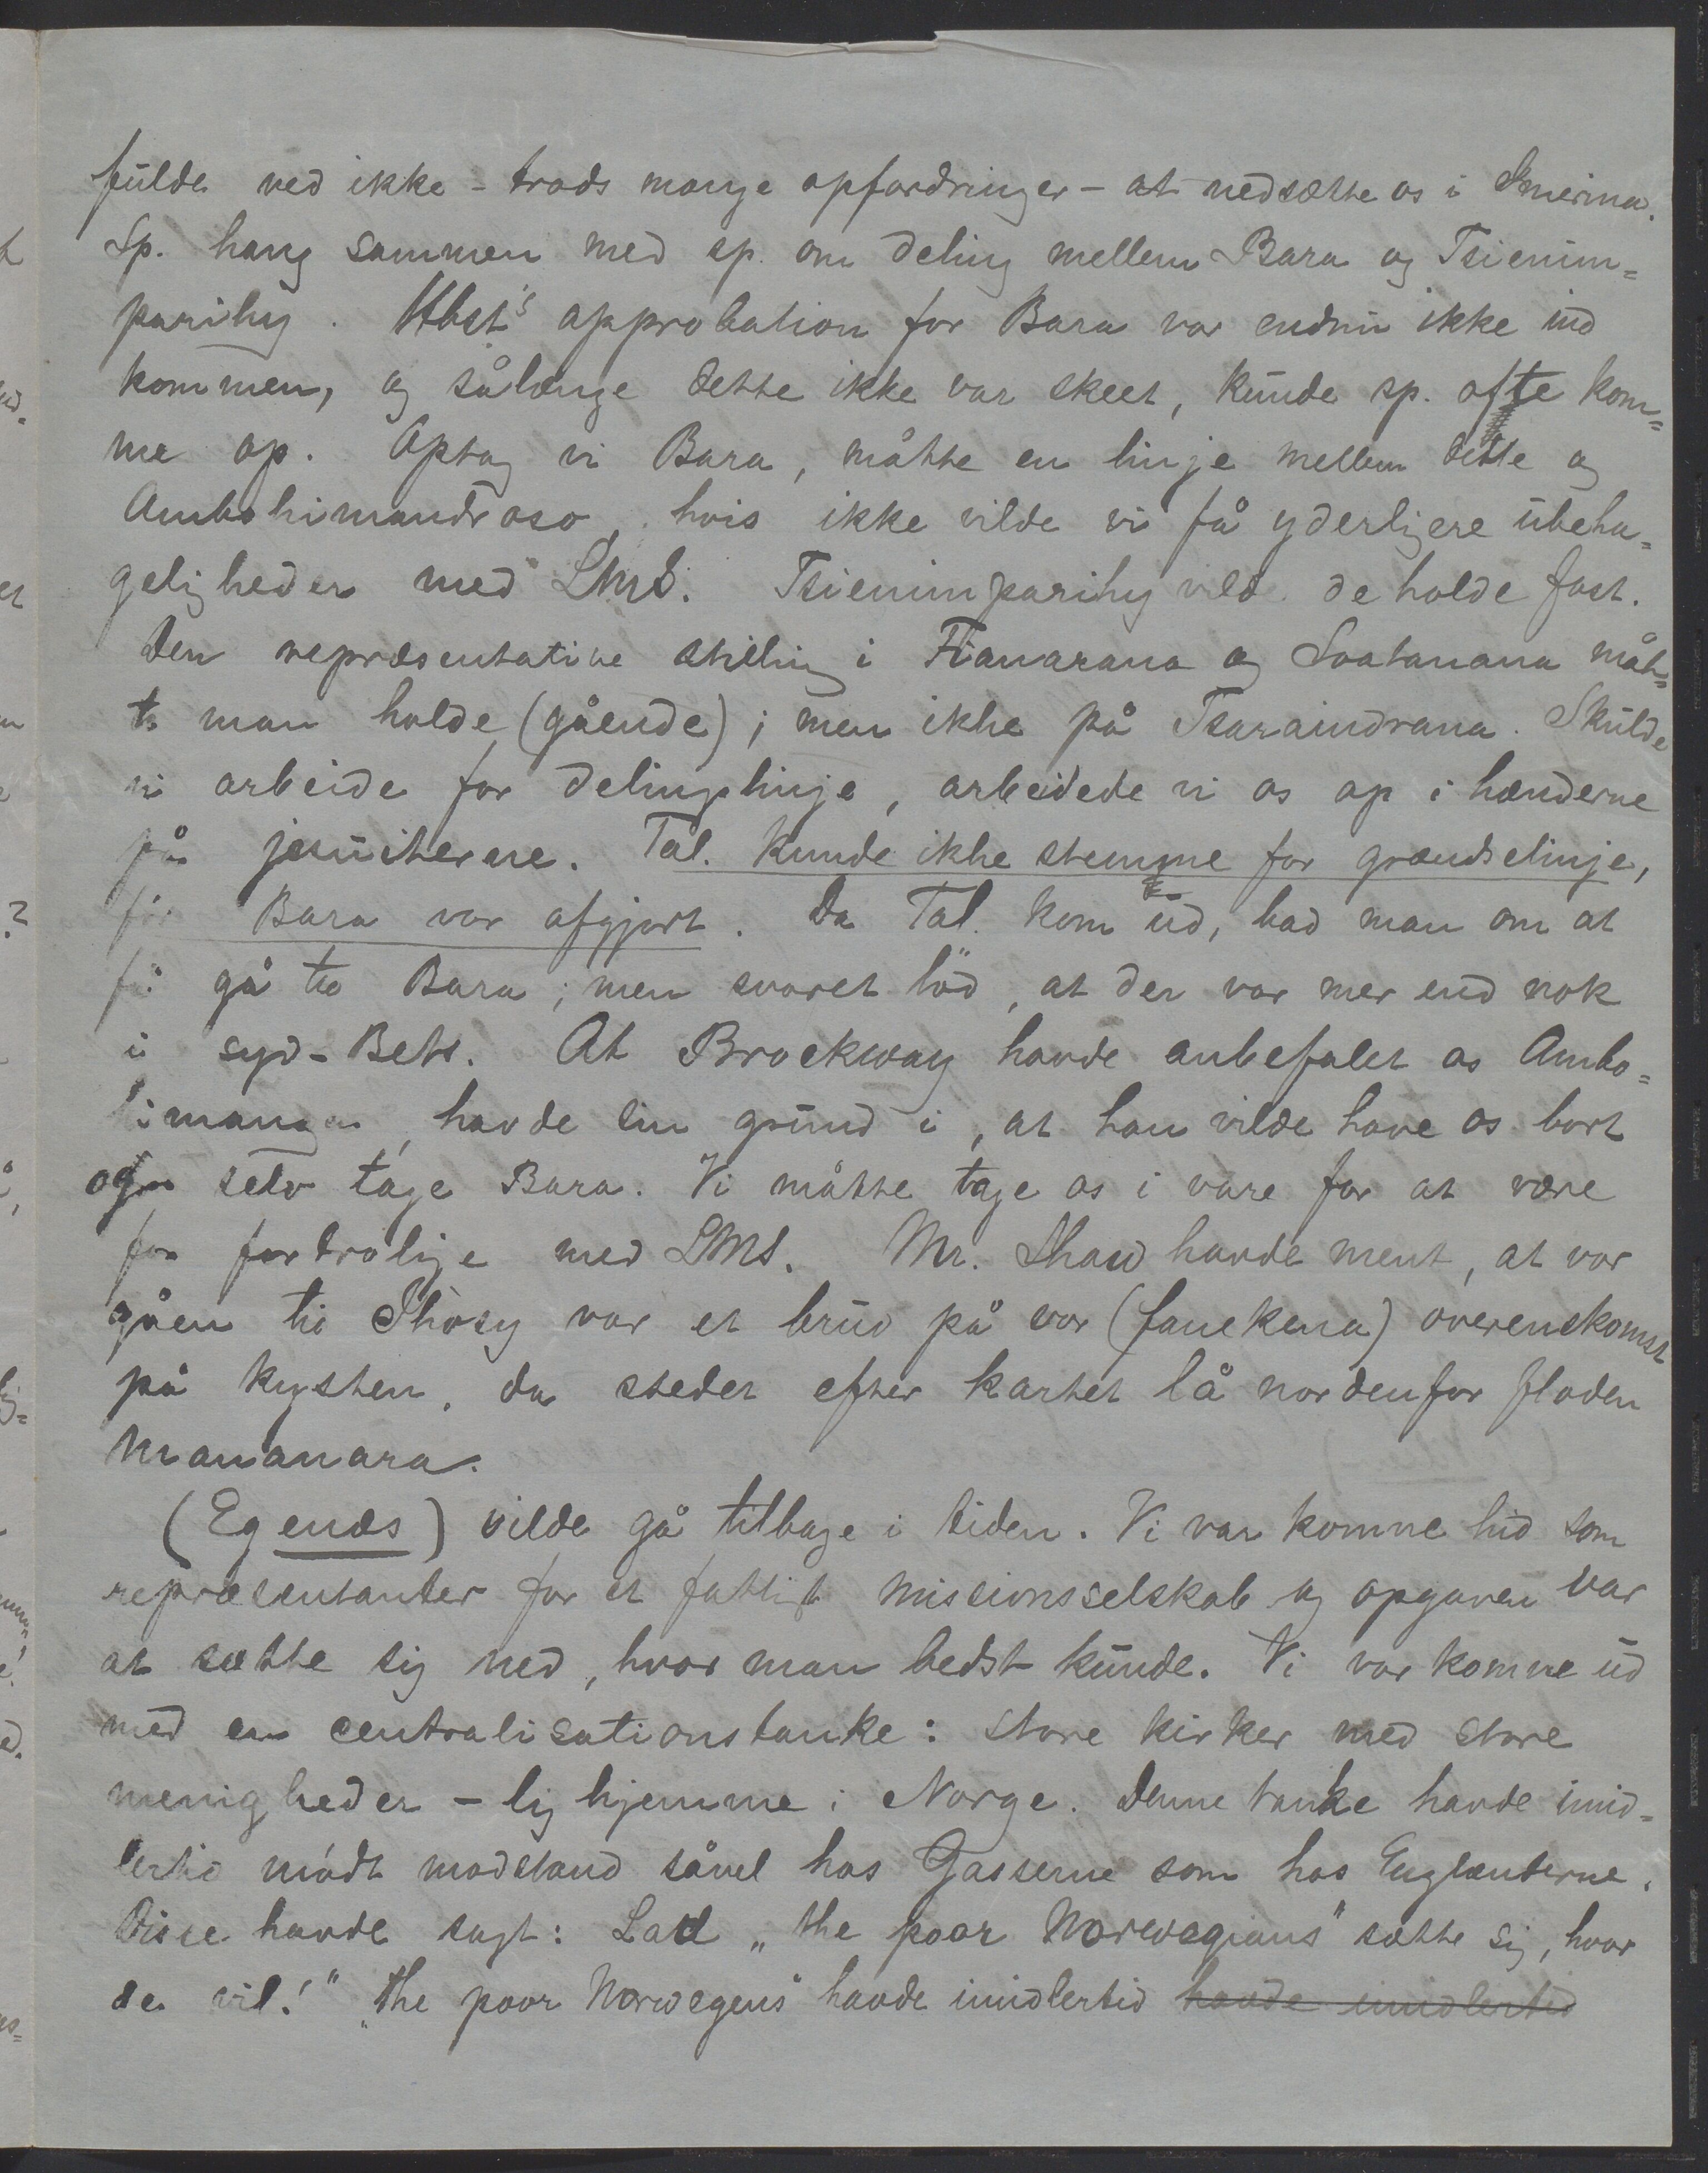 fulde ved ikke - trods mange opfordringer - at nedsætte os i Imerina.
Sp. hang sammen med sp. om deling mellem Bara og Tsienim=
parihy. Hbst's approbation for Bara var endnu ikke ind
kommen, og sålænge dette ikke var skeet, kunde sp. ofte kom=
me op. Optog vi Bara, måtte en linje mellem dette og
Ambohimandroso, hvis ikke vilde vi få yderligere ubeha=
geligheder med LMS. Tsienimparihy vild. de holde fast.
Den repræsentative stilling i Fianarana og Soatanana måt=
te man holde (gående); men ikke på Tsaraindrana. Skulde
vi arbeide for delingslinje, arbeidede vi os op i hænderne
på jesuiterne. Tal. kunde ikke stemme for grændselinje,
før Bara var afgjort. Da Tal. kom ud, bad man om at
få gå til Bara; men svaret löd, at der var mer end nok
i syd-Bets. At Brockway havde anbefalet os Ambo=
himanga, havde sin grund i, at han vilde have os bort
og selv tage Bara. Vi måtte tage os i vare for at være
for fortrolige med LMS. Mr. Shaw havde ment, at vor
gåen til Ihosy var et brud på vor (fanekena) overenskomst
på kysten, da stedet efter kartet lå nordenfor floden
Mananara.
(Egenæs) vilde gå tilbage i tiden. Vi var komne hid som
repræsentanter for et fattigt missionsselskab og opgaven var
at sætte sig ned, hvor man bedst kunde. Vi var komne ud
med en centralisationstanke: store kirker med store
menigheder - lig hjemme i Norge. Denne tanke havde imid=
lertid mödt modstand såvel hos Gasserne som hos Englænderne.
Disse havde sagt: Lad „the poor Norwegians" sætte sig, hvor
de vil!" „the poor Norwegens" havde imidlertid havde imidlertid